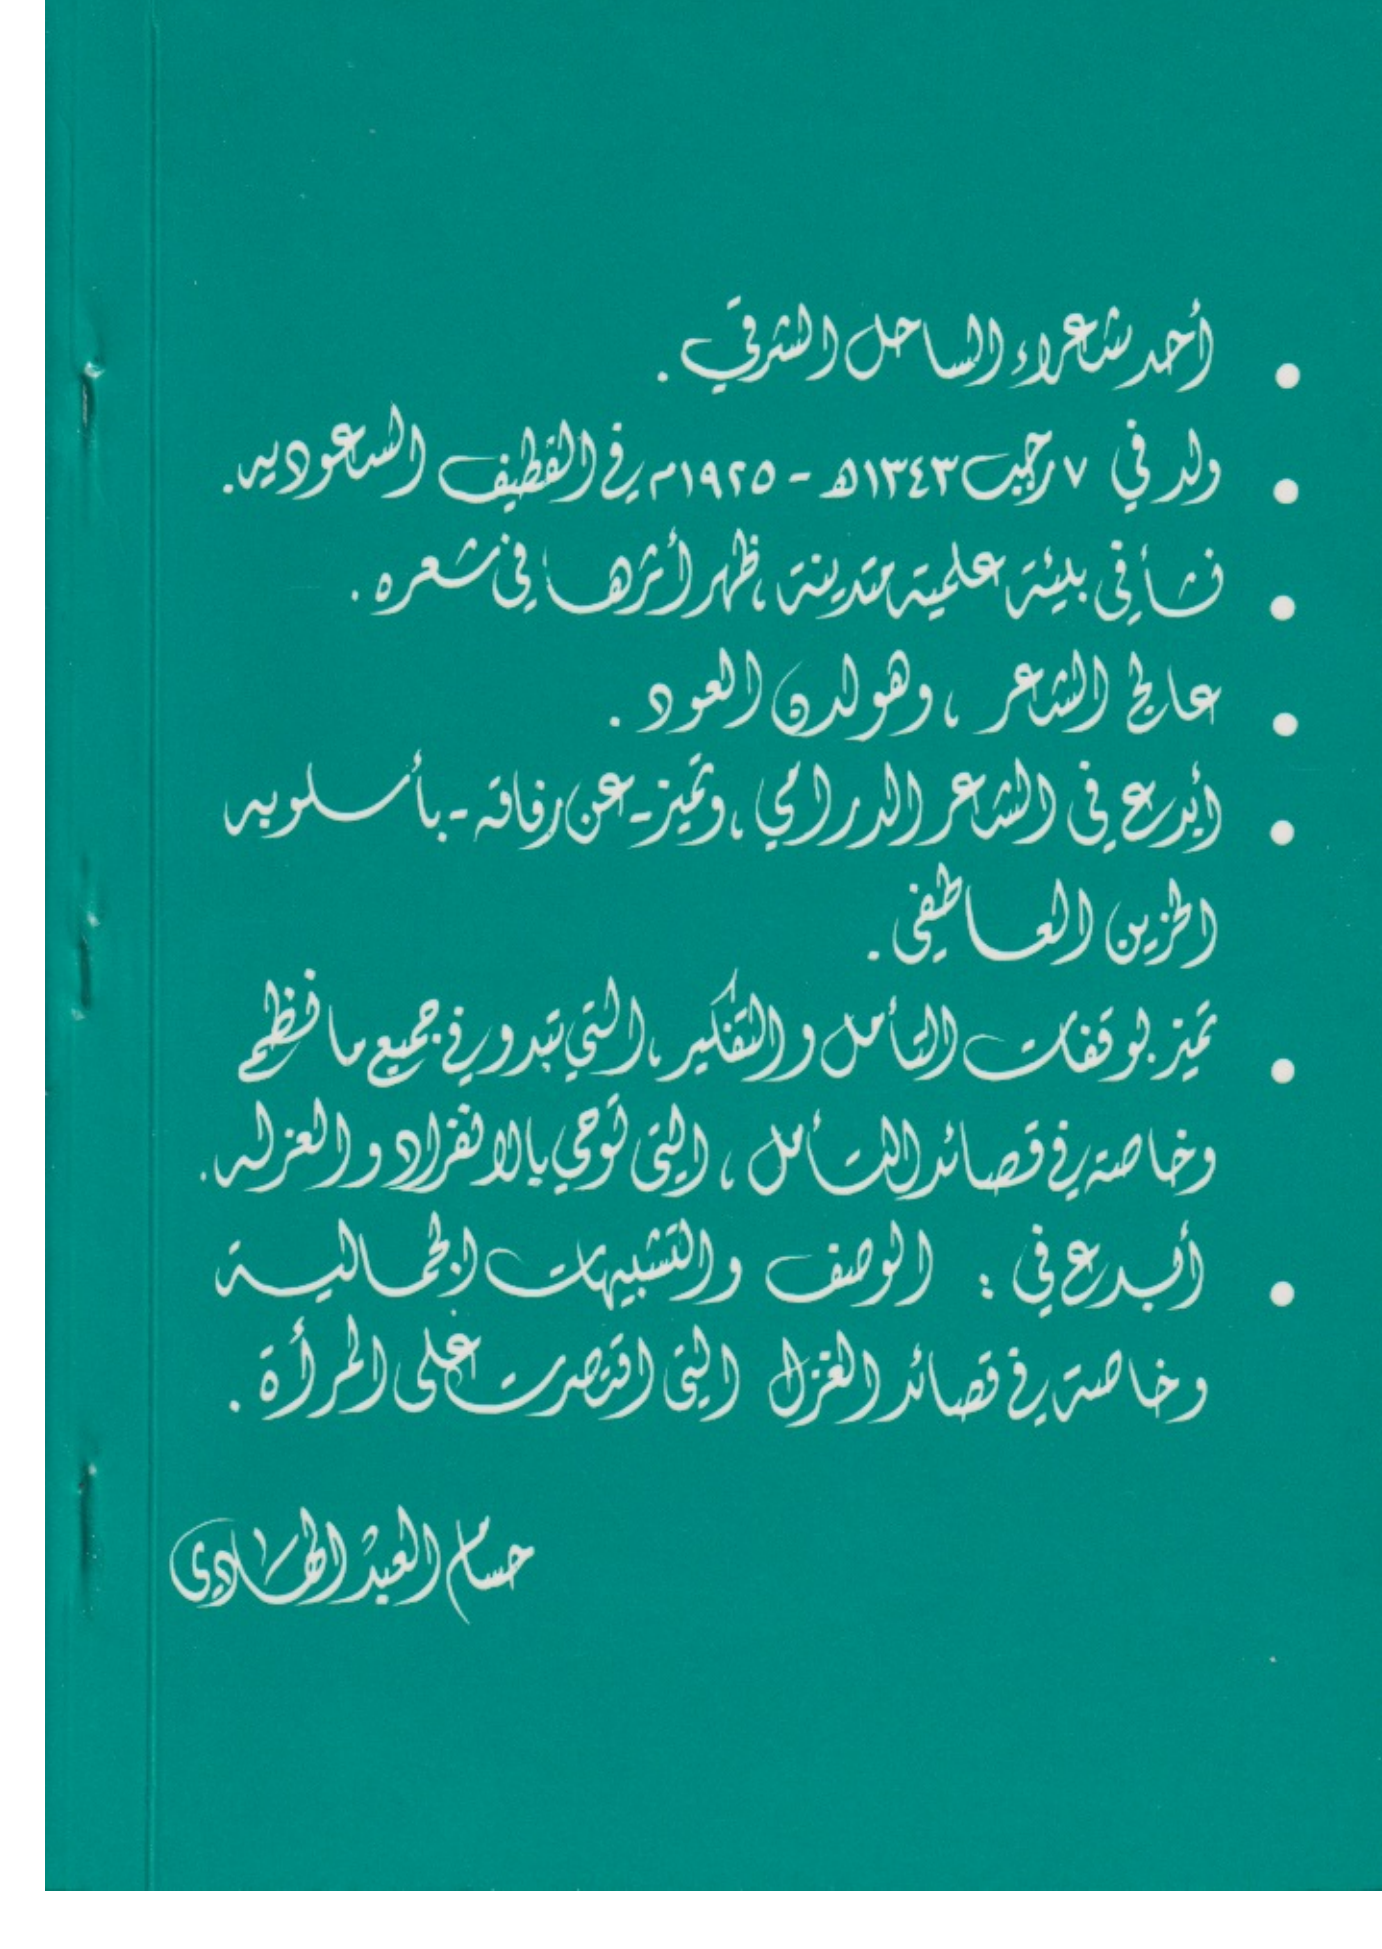 • أحد شعراء الساحل الشرقي .
• ولد في ٧ رجب ١٣٤٣هـ - ١٩٢٥م في القطيف السعوديه.
• نشأ في بيئة علمية متدينة، ظهر أثرها في شعره .
• عالج الشعر ، وهو لدن العود .
• أبدع في الشعر الدرامي ، وتميز - عن رفاقه - بأسلوبه
الحزين العاطفي .
• تميز بوقفات التأمل والتفكير ، التي تبدو في جميع ما نظم
وخاصة في قصائد التأمل ، التي توحي بالانفراد والعزله .
• أبدع في : الوصف والتشبيهات الجمالية
وخاصة في قصائد الغزل التي اقتصرت على المرأة .
حسام العبد الهادي